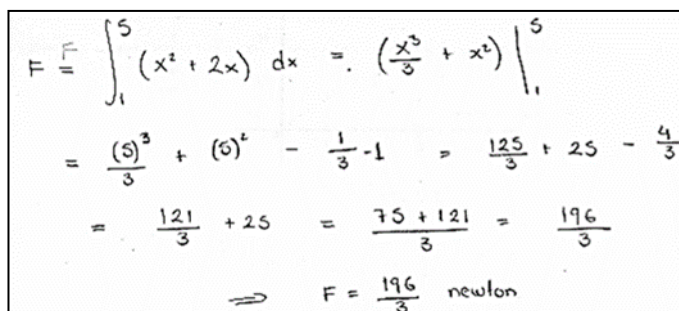 F = ∫₁⁵ (x² + 2x) dx = (x³/3 + x²) |₁⁵
= (5)³/3 + (5)² - 1/3 - 1 = 125/3 + 25 - 4/3
= 121/3 + 25 = (75 + 121)/3 = 196/3
⇒ F = 196/3 newton